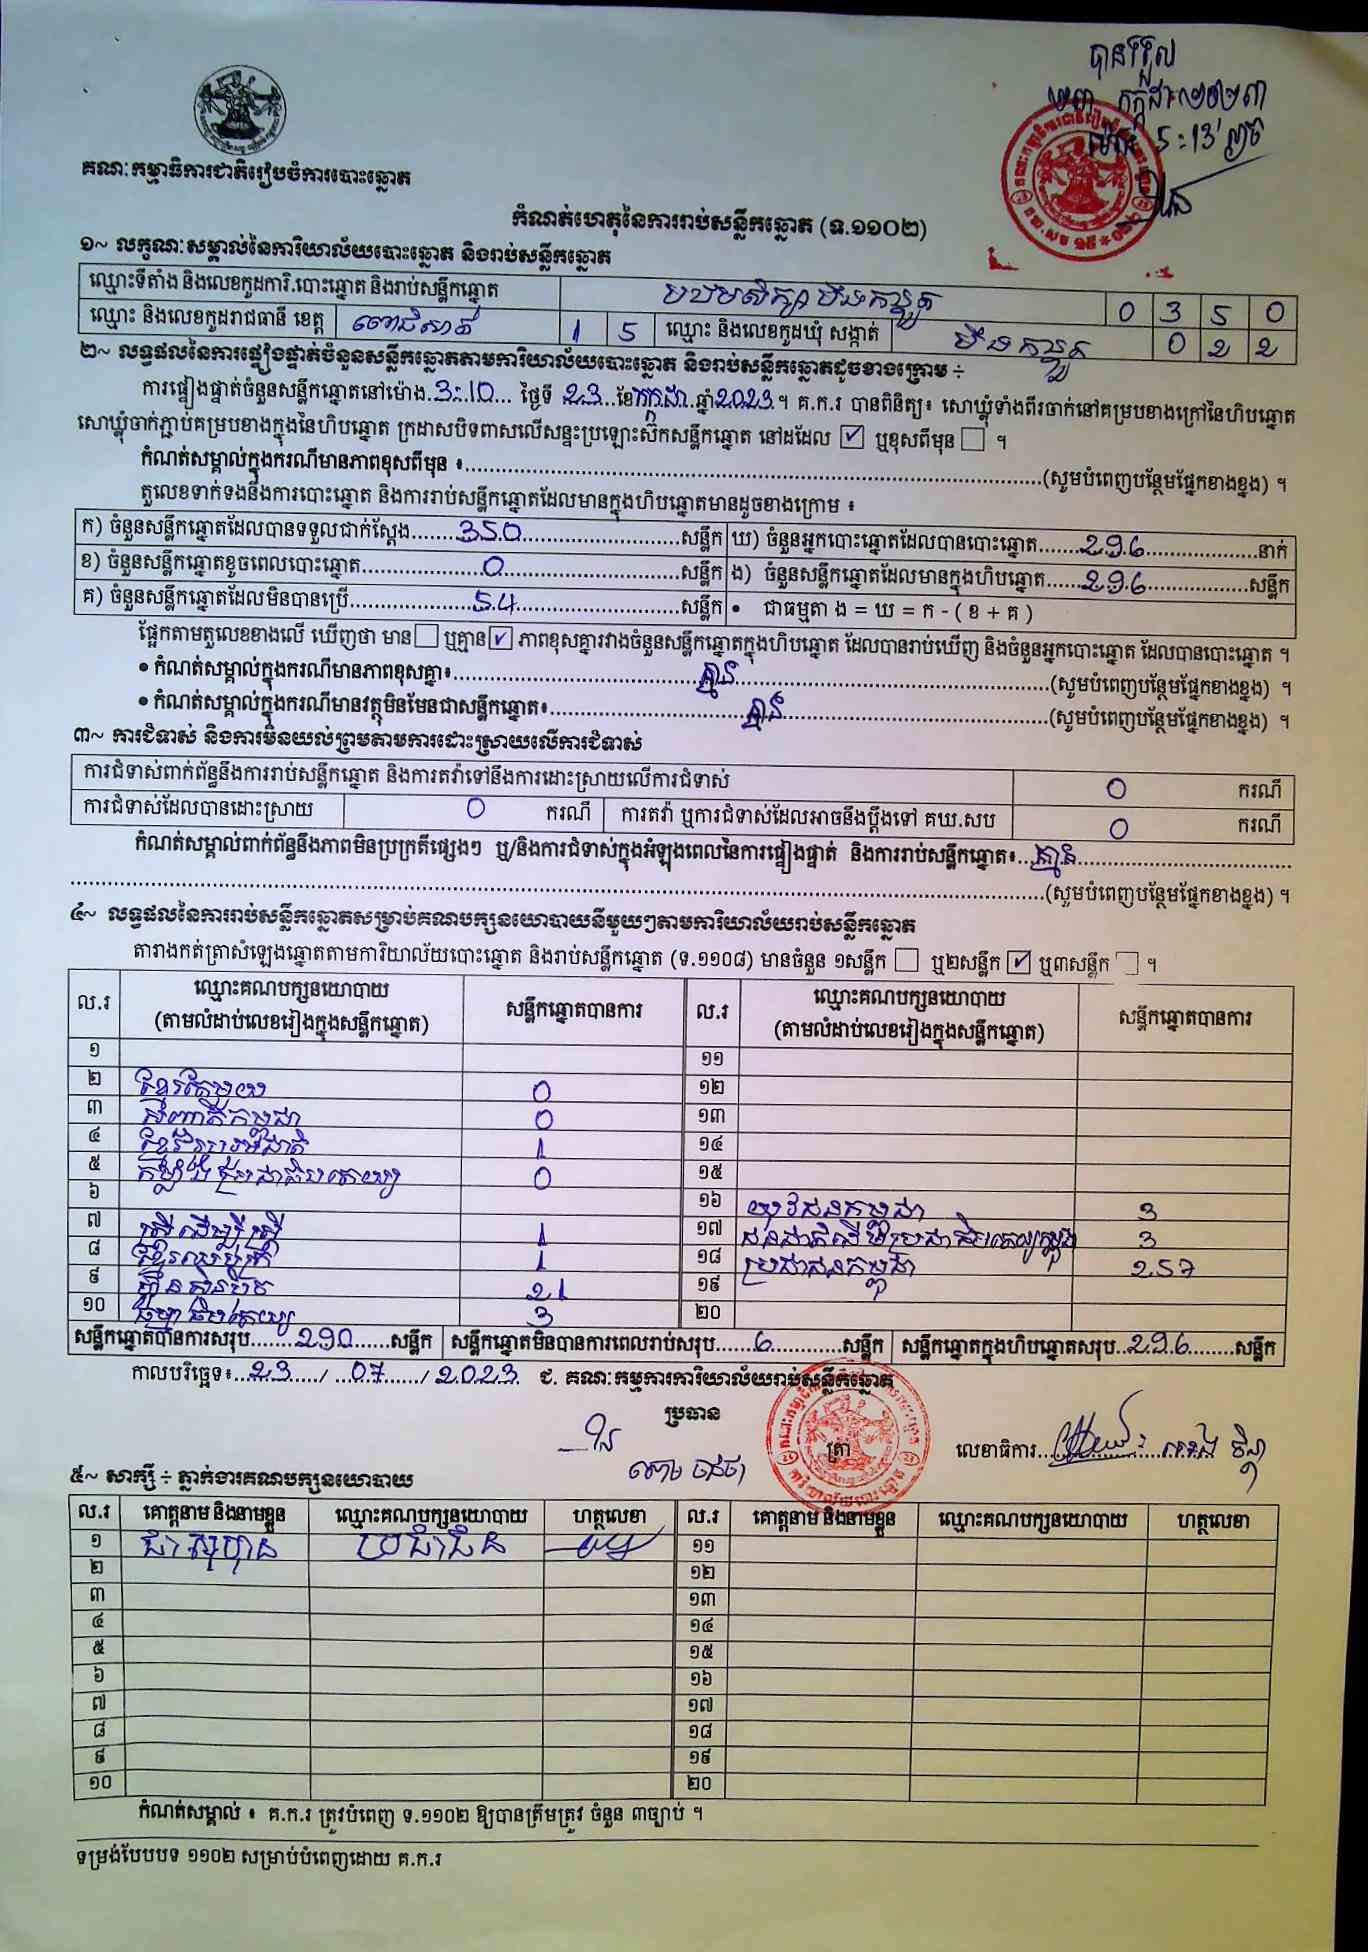 បានទទួល
២៣ កក្កដា ២០២៣
ម៉ោង 5:13
គណៈកម្មាធិការជាតិរៀបចំការបោះឆ្នោត
កំណត់ហេតុនៃការរាប់សន្លឹកឆ្នោត (ទ.១១០២)
១~ លក្ខណៈសម្គាល់នៃការិយាល័យបោះឆ្នោត និងរាប់សន្លឹកឆ្នោត
ឈ្មោះទីតាំង និងលេខកូដការិ.បោះឆ្នោត និងរាប់សន្លឹកឆ្នោត បឋមសិក្សា 0 3 5 0
ឈ្មោះ និងលេខកូដរាជធានី ខេត្ត ពោធិ៍សាត់ 1 5 ឈ្មោះ និងលេខកូដឃុំ សង្កាត់ 0 2 2
២~ លទ្ធផលនៃការផ្ទៀងផ្ទាត់ចំនួនសន្លឹកឆ្នោតតាមការិយាល័យបោះឆ្នោត និងរាប់សន្លឹកឆ្នោតដូចខាងក្រោម ÷
ការផ្ទៀងផ្ទាត់ចំនួនសន្លឹកឆ្នោតនៅម៉ោង.3:10... ថ្ងៃទី 23..ខែកក្កដា.ឆ្នាំ2023.។ គ.ក.រ បានពិនិត្យ៖ សោឃ្លុំទាំងពីរចាក់នៅគម្របខាងក្រៅនៃហិបឆ្នោត
សោឃ្លុំចាក់ភ្ជាប់គម្របខាងក្នុងនៃហិបឆ្នោត ក្រដាសបិទពាសលើសន្ទះប្រឡោះស៊កសន្លឹកឆ្នោត នៅដដែល ☑ ឬខុសពីមុន ☐ ។
កំណត់សម្គាល់ក្នុងករណីមានភាពខុសពីមុន ៖........(សូមបំពេញបន្ថែមផ្នែកខាងខ្នង) ។
តួលេខទាក់ទងនឹងការបោះឆ្នោត និងការរាប់សន្លឹកឆ្នោតដែលមានក្នុងហិបឆ្នោតមានដូចខាងក្រោម ៖
ក) ចំនួនសន្លឹកឆ្នោតដែលបានទទួលជាក់ស្តែង........350........សន្លឹក ឃ) ចំនួនអ្នកបោះឆ្នោតដែលបានបោះឆ្នោត.......296........នាក់
ខ) ចំនួនសន្លឹកឆ្នោតខូចពេលបោះឆ្នោត........0........សន្លឹក ង) ចំនួនសន្លឹកឆ្នោតដែលមានក្នុងហិបឆ្នោត......296........សន្លឹក
គ) ចំនួនសន្លឹកឆ្នោតដែលមិនបានប្រើ........54........សន្លឹក • ជាធម្មតា ង = ឃ = ក - ( ខ + គ )
ផ្អែកតាមតួលេខខាងលើ ឃើញថា មាន☐ ឬគ្មាន☑ ភាពខុសគ្នារវាងចំនួនសន្លឹកឆ្នោតក្នុងហិបឆ្នោត ដែលបានរាប់ឃើញ និងចំនួនអ្នកបោះឆ្នោត ដែលបានបោះឆ្នោត ។
• កំណត់សម្គាល់ក្នុងករណីមានភាពខុសគ្នា៖........គ្មាន........(សូមបំពេញបន្ថែមផ្នែកខាងខ្នង) ។
• កំណត់សម្គាល់ក្នុងករណីមានវត្ថុមិនមែនជាសន្លឹកឆ្នោត៖........គ្មាន........(សូមបំពេញបន្ថែមផ្នែកខាងខ្នង) ។
៣~ ការជំទាស់ និងការមិនយល់ព្រមតាមការដោះស្រាយលើការជំទាស់
ការជំទាស់ពាក់ព័ន្ធនឹងការរាប់សន្លឹកឆ្នោត និងការតវ៉ាទៅនឹងការដោះស្រាយលើការជំទាស់ 0 ករណី
ការជំទាស់ដែលបានដោះស្រាយ 0 ករណី ការតវ៉ា ឬការជំទាស់ដែលអាចនឹងប្តឹងទៅ គឃ.សប 0 ករណី
កំណត់សម្គាល់ពាក់ព័ន្ធនឹងភាពមិនប្រក្រតីផ្សេងៗ ឬ/និងការជំទាស់ក្នុងអំឡុងពេលនៃការផ្ទៀងផ្ទាត់ និងការរាប់សន្លឹកឆ្នោត៖...គ្មាន........
........(សូមបំពេញបន្ថែមផ្នែកខាងខ្នង) ។
៤~ លទ្ធផលនៃការរាប់សន្លឹកឆ្នោតសម្រាប់គណបក្សនយោបាយនីមួយៗតាមការិយាល័យរាប់សន្លឹកឆ្នោត
តារាងកត់ត្រាសំឡេងឆ្នោតតាមការិយាល័យបោះឆ្នោត និងរាប់សន្លឹកឆ្នោត (ទ.១១០៨) មានចំនួន ១សន្លឹក ☐ ឬ២សន្លឹក ☑ ឬ៣សន្លឹក ☐ ។
ល.រ ឈ្មោះគណបក្សនយោបាយ (តាមលំដាប់លេខរៀងក្នុងសន្លឹកឆ្នោត) សន្លឹកឆ្នោតបានការ ល.រ ឈ្មោះគណបក្សនយោបាយ (តាមលំដាប់លេខរៀងក្នុងសន្លឹកឆ្នោត) សន្លឹកឆ្នោតបានការ
១ ១១
២ ខ្មែរតែមួយ 0 ១២
៣ 0 ១៣
៤ 1 ១៤
៥ 0 ១៥
៦ ១៦ យុវជនកម្ពុជា 3
៧ ស្រីដើម្បីស្រី 1 ១៧ 3
៨ 1 ១៨ ប្រជាជនកម្ពុជា 257
៩ ហ្វ៊ុនស៊ិនប៉ិច 21 ១៩
១០ ធម្មាធិបតេយ្យ 3 ២០
សន្លឹកឆ្នោតបានការសរុប.......290......សន្លឹក សន្លឹកឆ្នោតមិនបានការពេលរាប់សរុប......6........សន្លឹក សន្លឹកឆ្នោតក្នុងហិបឆ្នោតសរុប..296........សន្លឹក
កាលបរិច្ឆេទ៖..23..../ ..07...../ .2023.. ជ. គណៈកម្មការការិយាល័យរាប់សន្លឹកឆ្នោត
ប្រធាន
ត្រា
លេខាធិការ........
៥~ សាក្សី ÷ ភ្នាក់ងារគណបក្សនយោបាយ
ល.រ គោត្តនាម និងនាមខ្លួន ឈ្មោះគណបក្សនយោបាយ ហត្ថលេខា ល.រ គោត្តនាម និងនាមខ្លួន ឈ្មោះគណបក្សនយោបាយ ហត្ថលេខា
១ ប្រជាជន ១១
២ ១២
៣ ១៣
៤ ១៤
៥ ១៥
៦ ១៦
៧ ១៧
៨ ១៨
៩ ១៩
១០ ២០
កំណត់សម្គាល់ ៖ គ.ក.រ ត្រូវបំពេញ ទ.១១០២ ឱ្យបានត្រឹមត្រូវ ចំនួន ៣ច្បាប់ ។
ទម្រង់បែបបទ ១១០២ សម្រាប់បំពេញដោយ គ.ក.រ